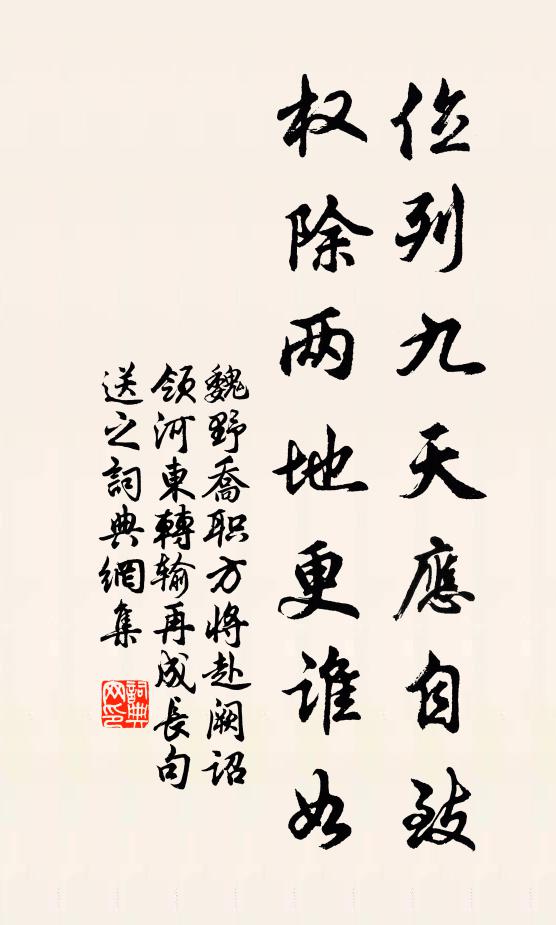 位列九天應自致
权除两地更谁如
魏野喬职方将赴阙诏
领河東轉输再成長句
送之詞典網集
詞典
网印